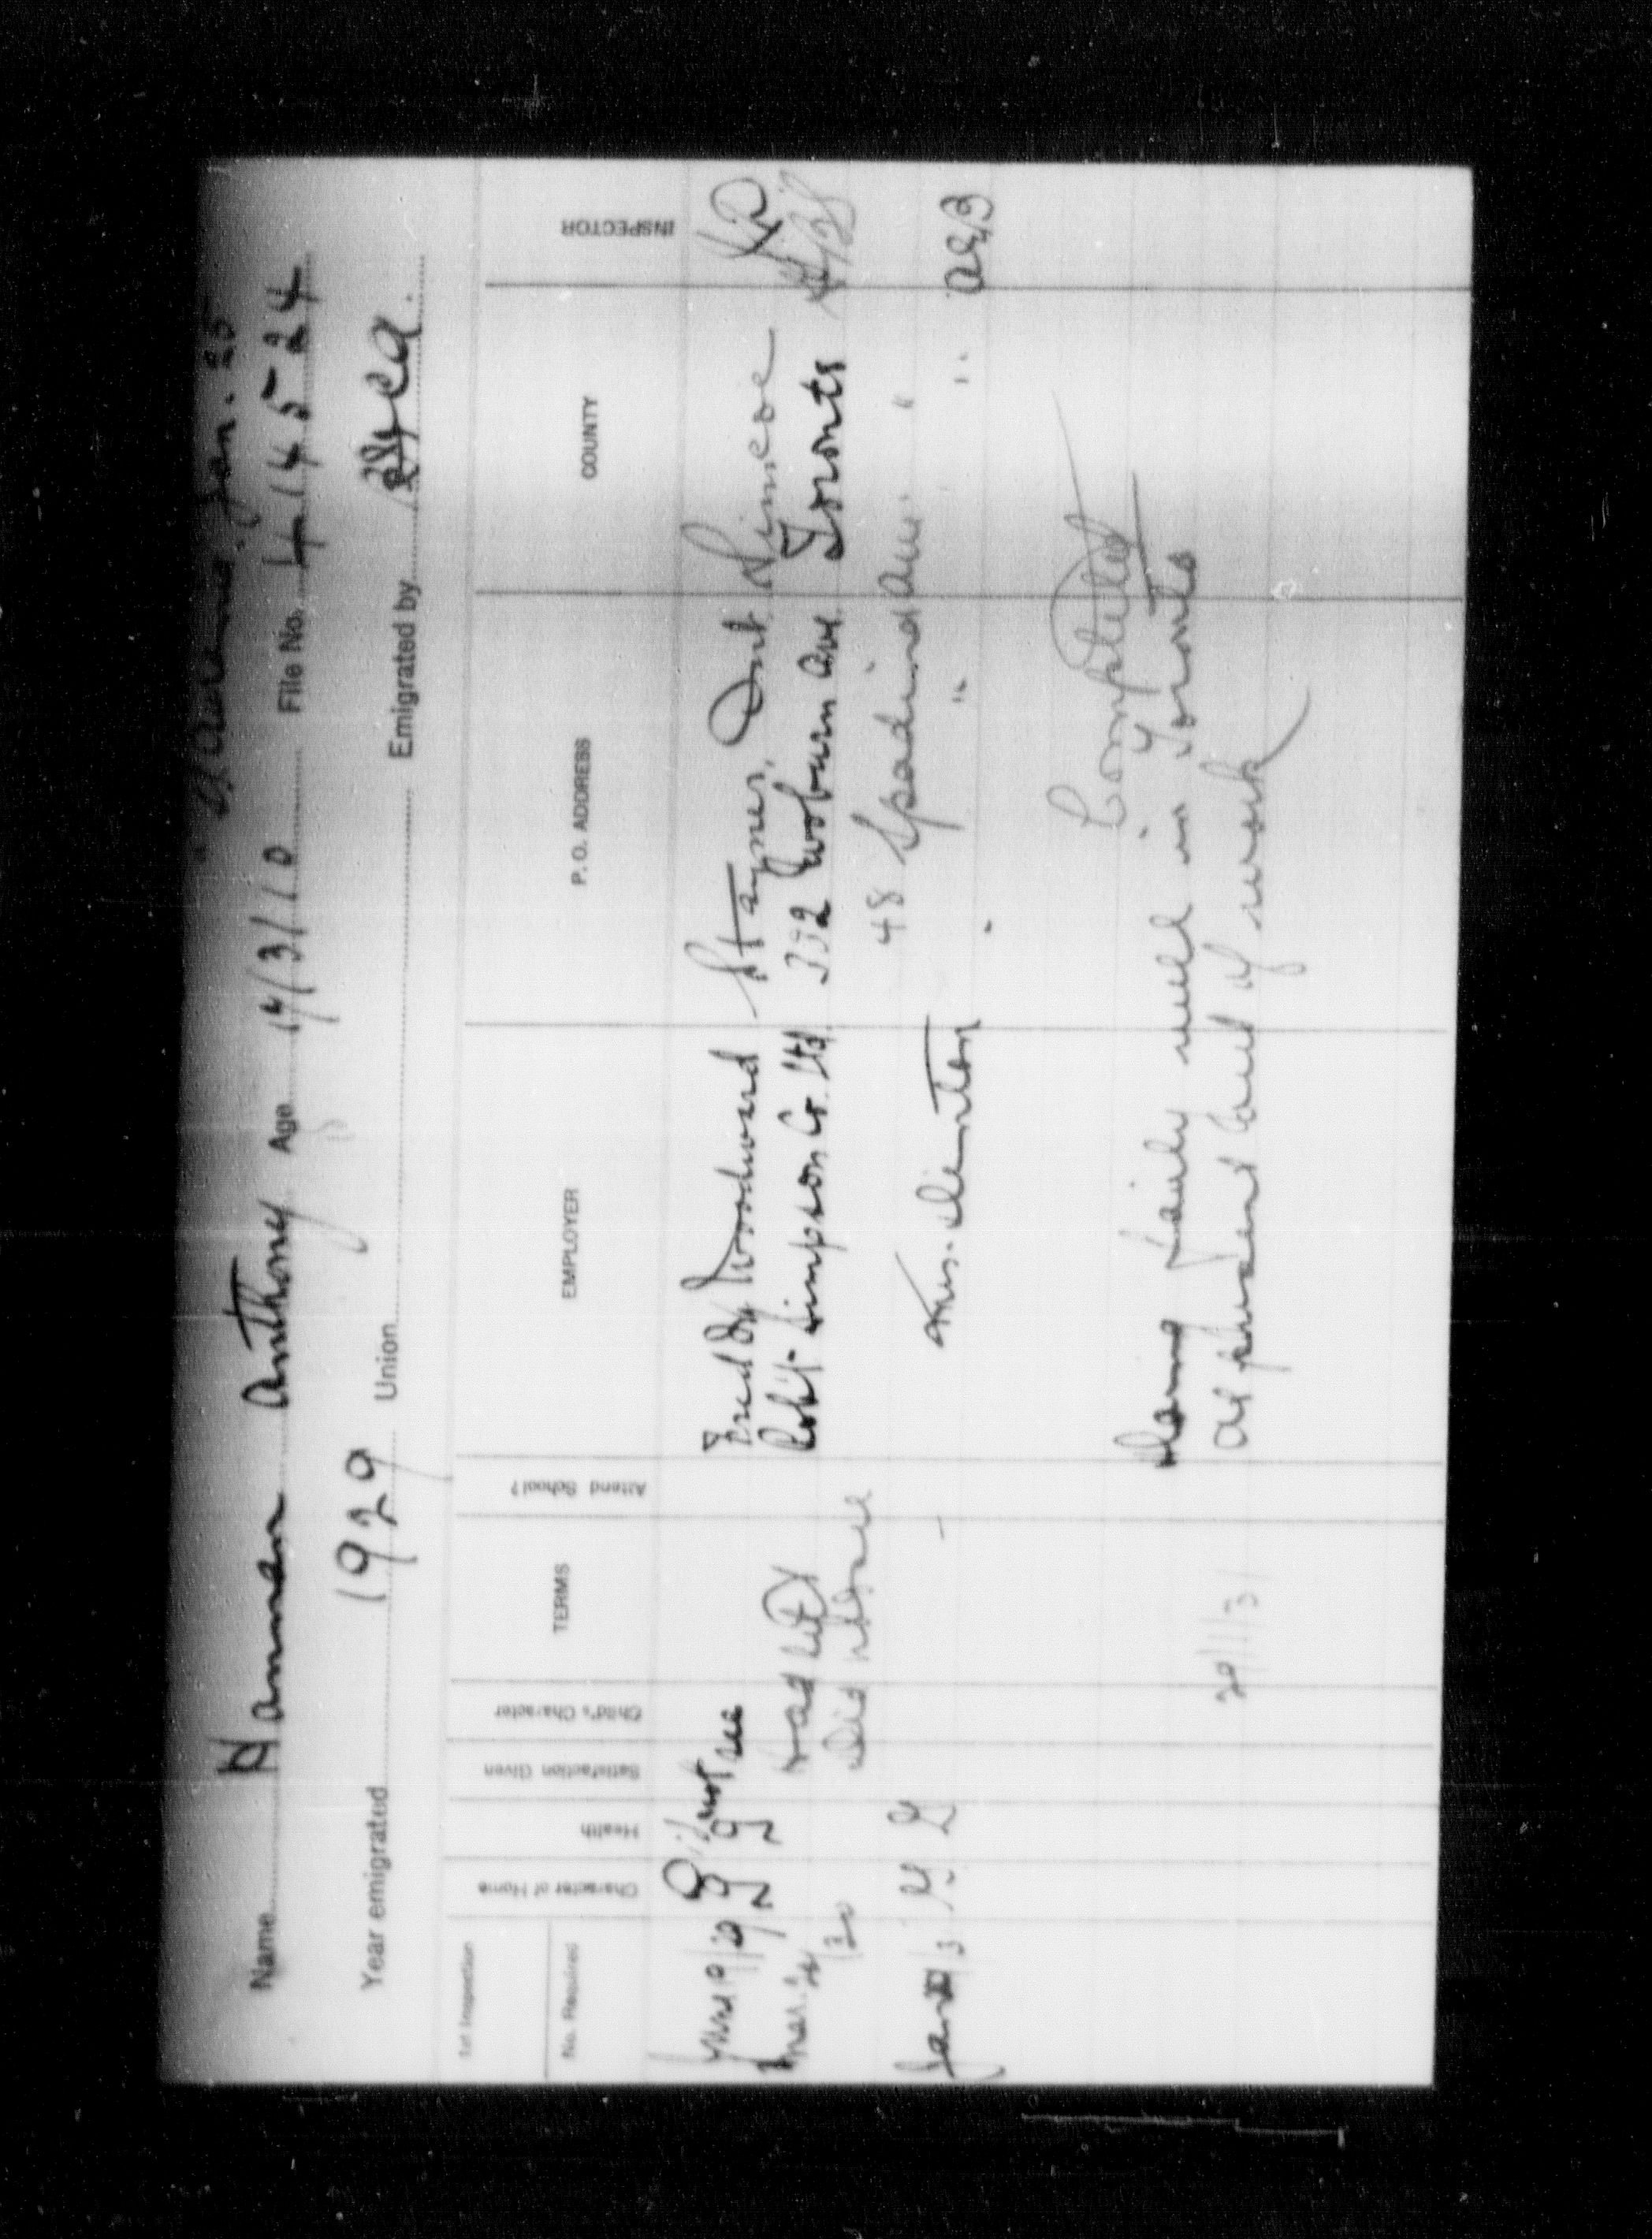 Jan. 25
Name Hannan Anthony Age 14/3/10 File No. 414524
Year emigrated 1929 Union Emigrated by C.A.
1st Inspection
No. Required Character of Home Health Satisfaction Given Child's Character TERMS Attend School? EMPLOYER P. O. ADDRESS COUNTY INSPECTOR
June 19/29 G G Did not see Fred Woodward Stayner, Ont Simcoe
Mar. 24/30 Had left Robt. Simpson Co. Ltd. 332 Woburn Ave. Toronto
Did not see 48 Spadina Ave. "
Jan /31 G G - Mrs. Denton " "
Completed
Doing fairly well in Toronto
At present out of work
29/1/31